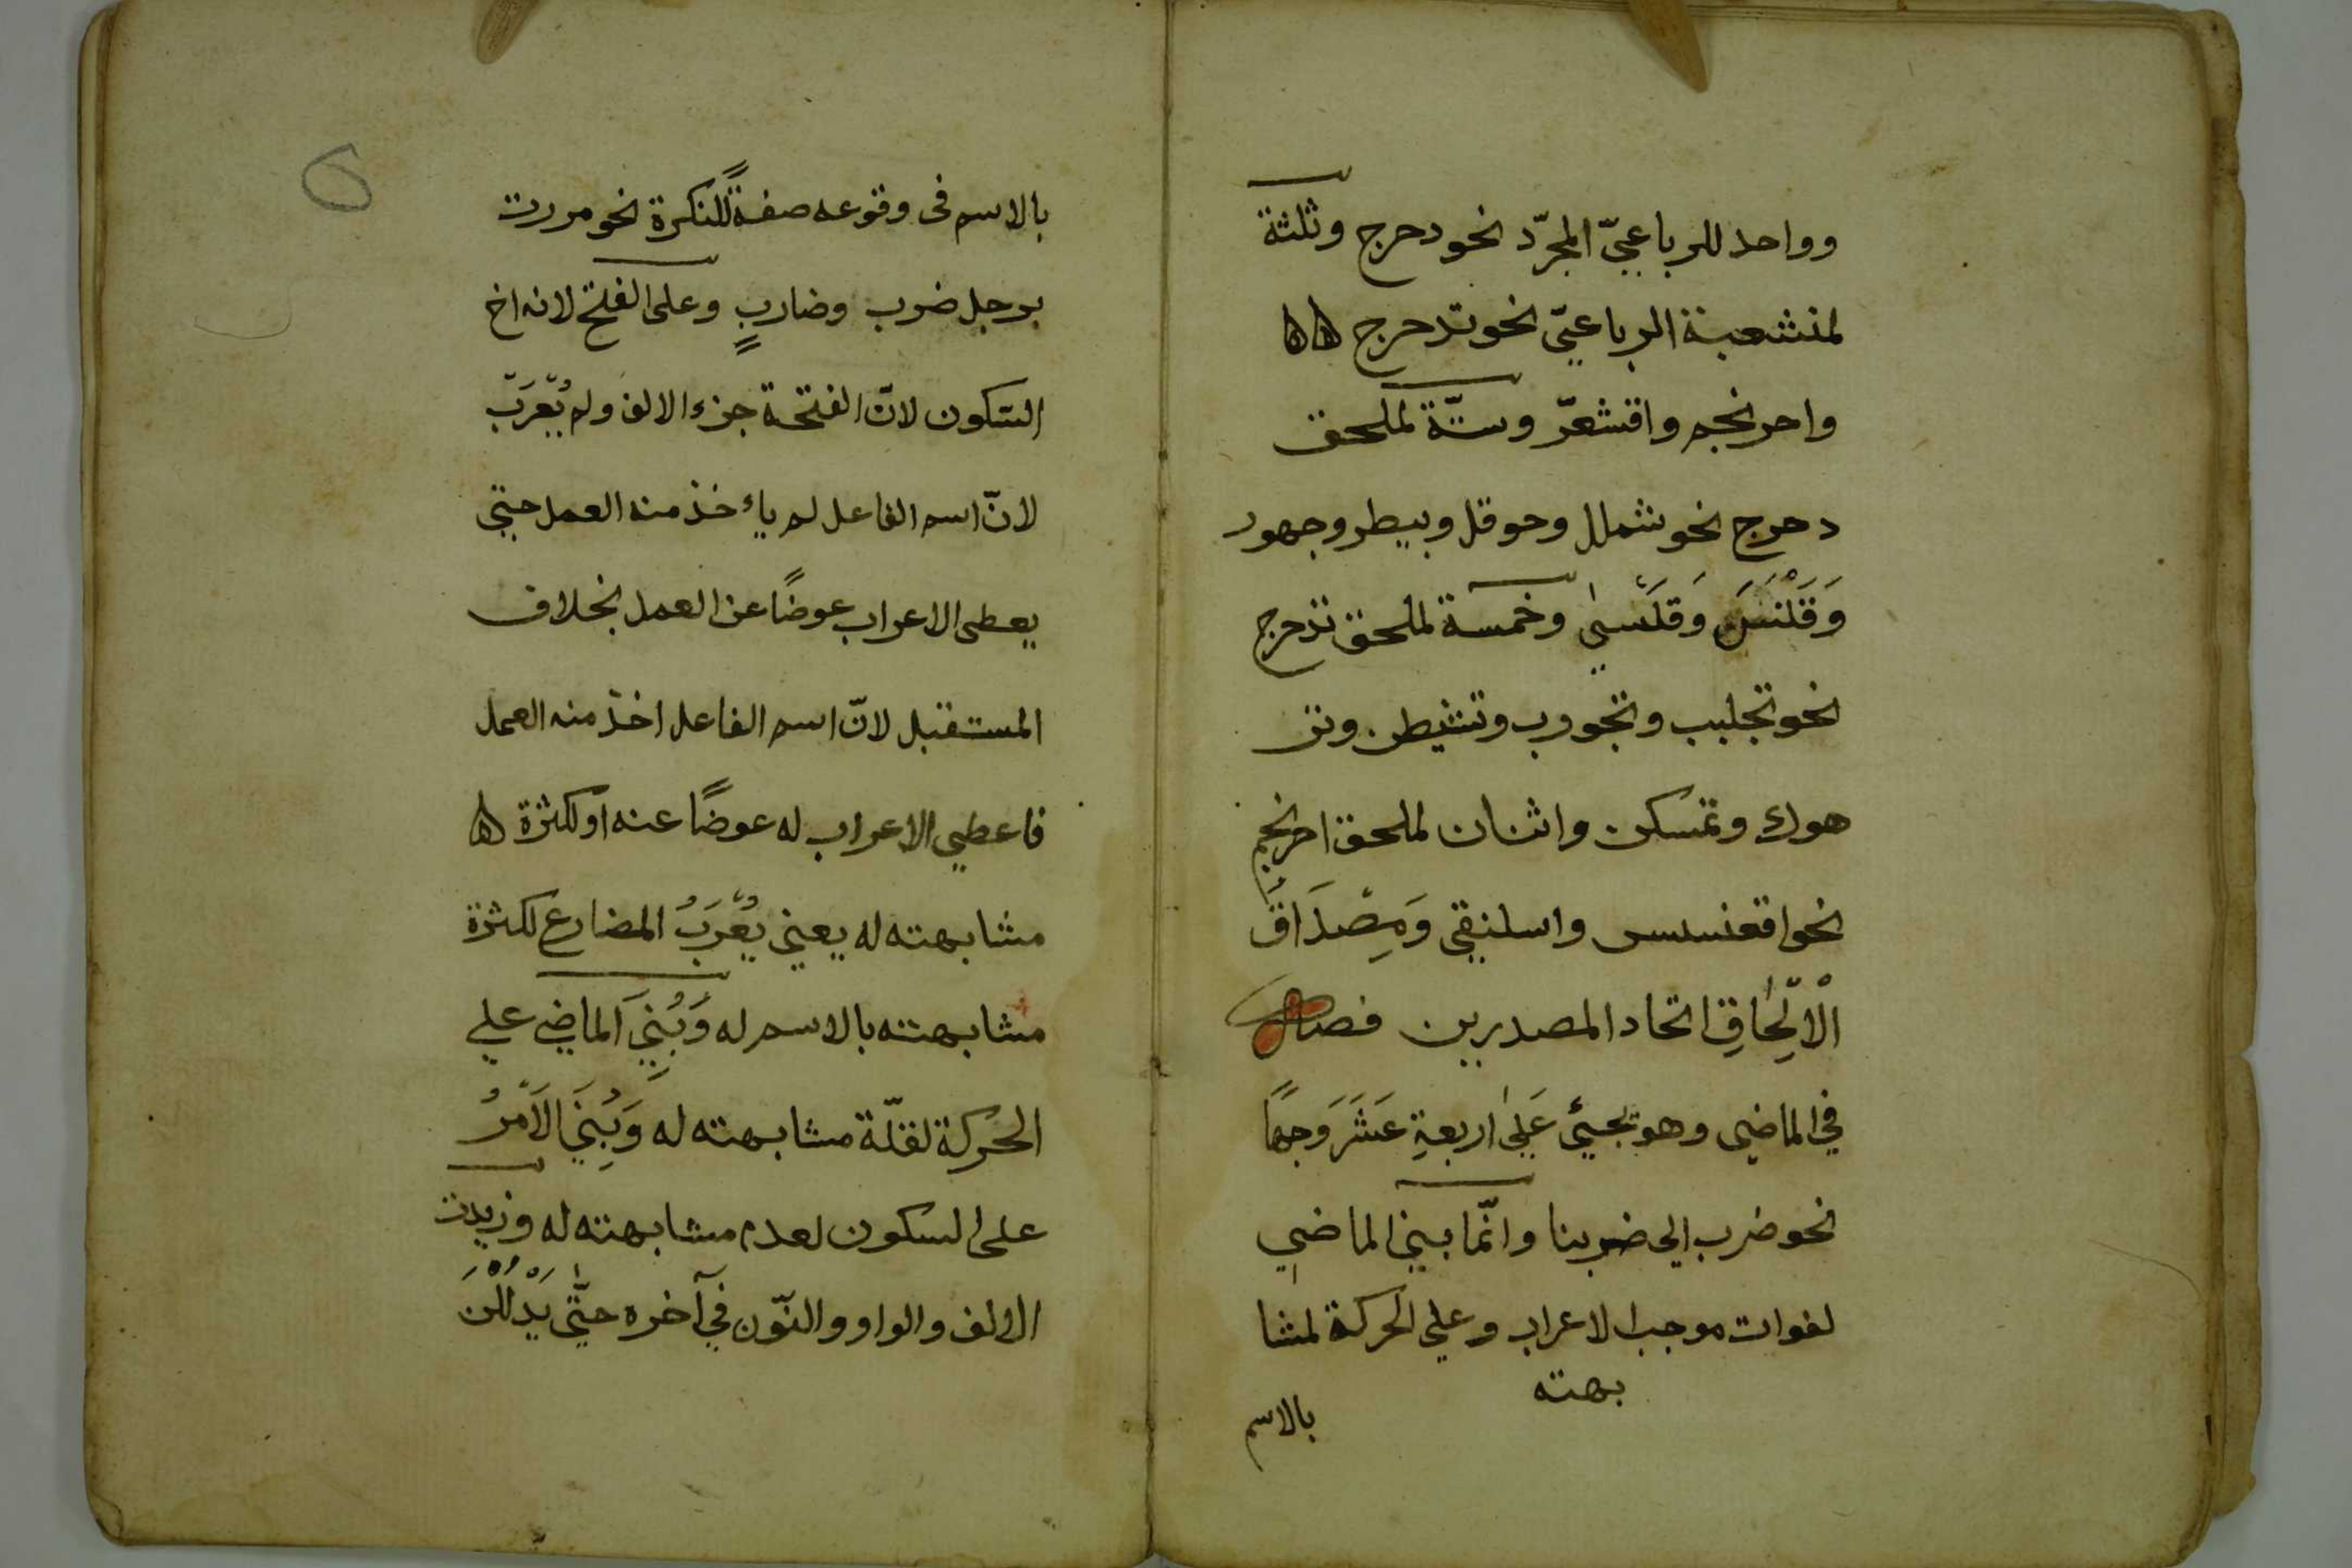 وواحد للرباعيّ المجرّد نحو دحرج وثلثة
لمنشعبة الرباعيّ نحو تدحرج
واحرنجم واقشعرّ وستّة لملحق
دحرج نحو شملل وحوقل وبيطر وجهور
وَقَلْنَسَ وَقَلْسىٰ وخمسة لملحق تدحرج
نحو تجلبب وتجورب وتشيطن وتر
هوك وتمسكن واثنان لملحق احرنجم
نحو اقعنسس واسلنقي وَمِصْدَاقُ
الْاِلْحَاقِ اتحاد المصدرين فصل
في الماضي وهو يجيئ عَلىٰ اربعةِ عَشَرَ وَجهًا
نحو ضرب الي ضربنا وانّما بني الماضي
لفوات موجب الاعراب وعلي الحركة لمشا
بهته
بالاسم
بالاسم فى وقوعه صفةً للنكرة نحو مررت
برجل ضرب وضاربٍ وعلى الفتح لانه اخ
السّكون لانّ الفتحة جزء الالف ولم يُعْرَبْ
لانّ اسم الفاعل لم يأخذ منه العمل حتى
يعطى الاعراب عوضًا عن العمل بخلاف
المستقبل لانّ اسم الفاعل اخذ منه العمل
فاعطي الاعراب له عوضًا عنه او لكثرة
مشابهته له يعني يُعْرَبُ المضارع لكثرة
مشابهته بالاسم له وَبُنِيَ الماضي علي
الحركة لقلّة مشابهته له وَبُنِيَ الاَمْرُ
على السكون لعدم مشابهته له وزيدت
الالف والواو والنّون في آخره حتّٰى يَدْلُلْنَ